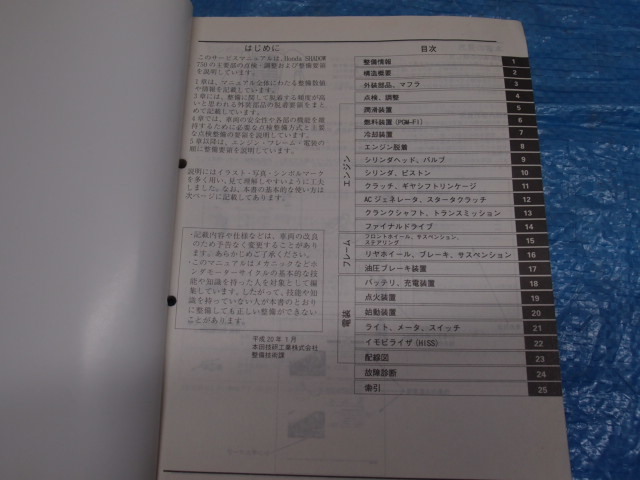 はじめに
このサービスマニュアルは、Honda SHADOW
750の主要部の点検・調整および整備要領
を説明しています。
1章は、マニュアル全体にわたる整備情報
や種類を記載しています。
3章には、整備に際して脱着する頻度が高
いと思われる外装部品の脱着要領をまと
めて記載しています。
4章では、車両の安全性や各部の機能を維
持するために必要な点検整備方式と主要
な点検整備の要領を説明しています。
5章以降は、エンジン・フレーム・電装の
順に整備要領を説明しています。
説明にはイラスト・写真・シンボルマーク
を多く用い、見て理解しやすいように工夫
しました。なお、本書の基本的な使い方は
次ページに記載してあります。
・記載内容や仕様などは、車両の改良
のため予告なく変更することがあり
ます。あらかじめご了承ください。
・このマニュアルはメカニックなどホ
ンダモーターサイクルの基本的な技
能や知識を持った人を対象として編
集しています。したがって、技能や知
識を持っていない人が本書のとおり
に整備しても正しい整備ができない
ことがあります。
平成20年1月
本田技研工業株式会社
整備技術課
目次
整備情報 1
構造概要 2
外装部品、マフラ 3
点検、調整 4
エンジン
潤滑装置 5
燃料装置(PGM-FI) 6
冷却装置 7
エンジン脱着 8
シリンダヘッド、バルブ 9
シリンダ、ピストン 10
クラッチ、ギヤシフトリンケージ 11
ACジェネレータ、スタータクラッチ 12
クランクシャフト、トランスミッション 13
ファイナルドライブ 14
フレーム
フロントホイール、サスペンション、
ステアリング 15
リヤホイール、ブレーキ、サスペンション 16
油圧ブレーキ装置 17
電装
バッテリ、充電装置 18
点火装置 19
始動装置 20
ライト、メータ、スイッチ 21
イモビライザ(HISS) 22
配線図 23
故障診断 24
索引 25